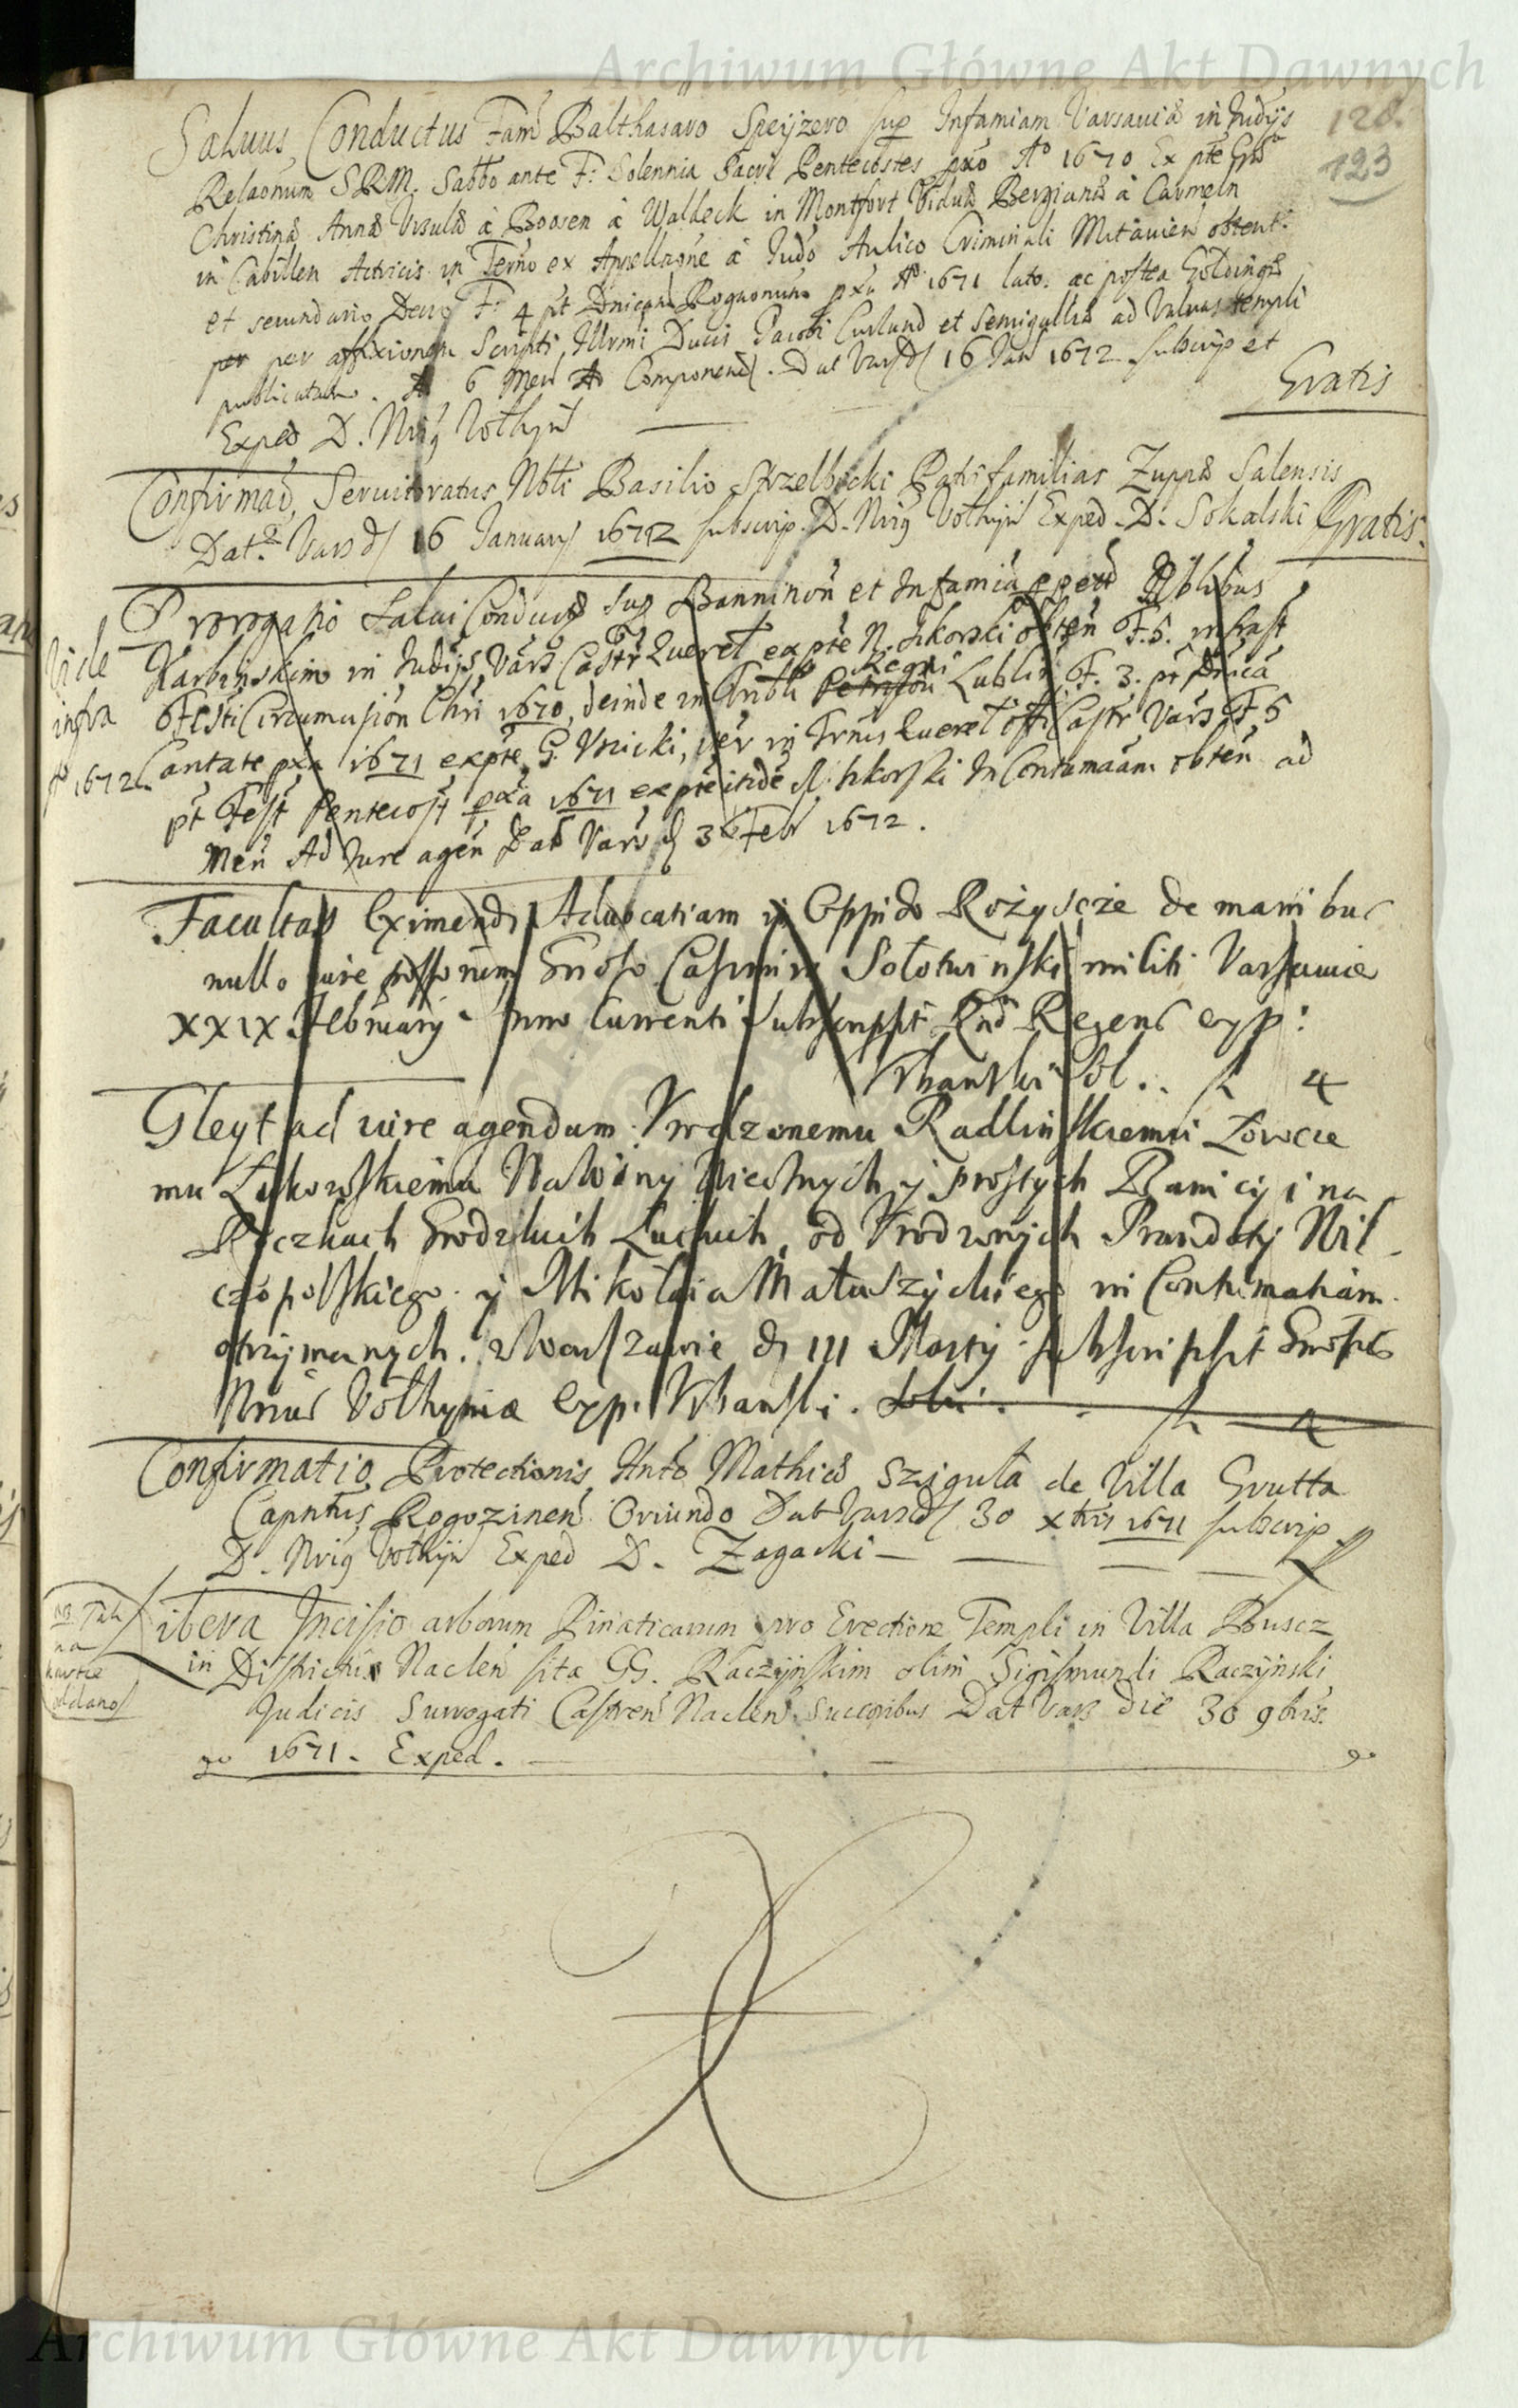 Archiwum Główne Akt Dawnych
128.
123
Saluus Conductus Fam Balthasaro Speijzero sup Infamiam Varsauiæ in Judijs
Relaonum SRM. Sabbo ante F: Solennia Sacri Pentecostes pxo Aº 1670 Ex pte Gnsæ
Christinæ Annæ Vrsulæ à Boosen à Waldeck in Montfort Viduæ Bergianæ à Carmeln
in Cabillen Actricis in Termo ex Appellaone à Judo Aulico Criminali Mitauien obtent:
et secundario Decro F: 4 pt Dnicam Rogaonum pxa Aº 1671 lato. ac postea Goldingæ
per per affixionem Scripti Illrmi Ducis Jacobi Curland et Semigalliæ ad Valuas templi
publicatum. A 6 Men Ad Componend. Dat Vars d 16 Jan 1672 subscrip et
Exped D. Nrig Volhyn
Gratis
Confirmao Seruitoratus Nbli Basilio Strzelbicki Patrifamilias Zuppæ Salensis
Dat. Vars d 16 January 1672 subscrip. D. Nrig Volhyn Exped. D. Sokalski Gratis.
Prorogatio Salui Conductus sup Banninon et Infamia p perd Nblibus
Vide infra Aº 1672
Karbinskim in Judijs Vars Castr Querel ex pte N. Ikorski obten F. 5. infrast
Regni
Festi Circumcision Chri 1670, deinde in Tribli Petrison Lublin F. 3. pt Dnica
Cantate pxa 1671 ex pte G. Vnicki, ter in Trnis Querel offi Castr Vars F 5
pt Fest Pentecost pxa 1671 ex pte itidē N. Ikorski In Contumaam obten ad
Men Ad Jure agen Dat Vars d 3 Feb 1672.
Facultas Eximendi Aduocatiam in Oppido Rożyscze de manibus
nullo iure possorum Gnoso Casimiro Sołotwinski militi Varsauiæ
XXIX February Anno Currenti Subscripsit Rnd Regens exp:
Vrbanski Sol.. fl 4
Gleyt ad iure agendum Vrodzonemu Radlinskiemu Łowcze
mu Łukowskiemu Na Winy Wiecznych y prostych Banicij i na
Roczkach Grodzkich Łuckich, od Vrodzonych Prandoty Wil-
czopolskiego y Mikołaia Matuszyckiego in Contumatiam
otrzymanych. w Warszawie d III Marty subscripsit Gnosus
Nrius Volhyniæ exp. Vrbanski. Solui. fl 4
Confirmatio Protectionis Hnto Mathiæ Szigula de Villa Grutta
Capntus Rogozinen Oriundo Dat Vars d 30 xbris 1671 subscrip
D. Nrig Volhyn Exped D. Zagacki
NB. Tak
na
karcie
oddano
Libera Incisio arborum Pinaticarum pro Erectione Templi in Villa Buscz
in Districtu Naclen sita GG. Raczynskim olim Sigismundi Raczynski
Judicis Surrogati Castren Naclen Succoribus Dat Vars die 30 9bris.
Aº 1671. Exped.
Archiwum Główne Akt Dawnych